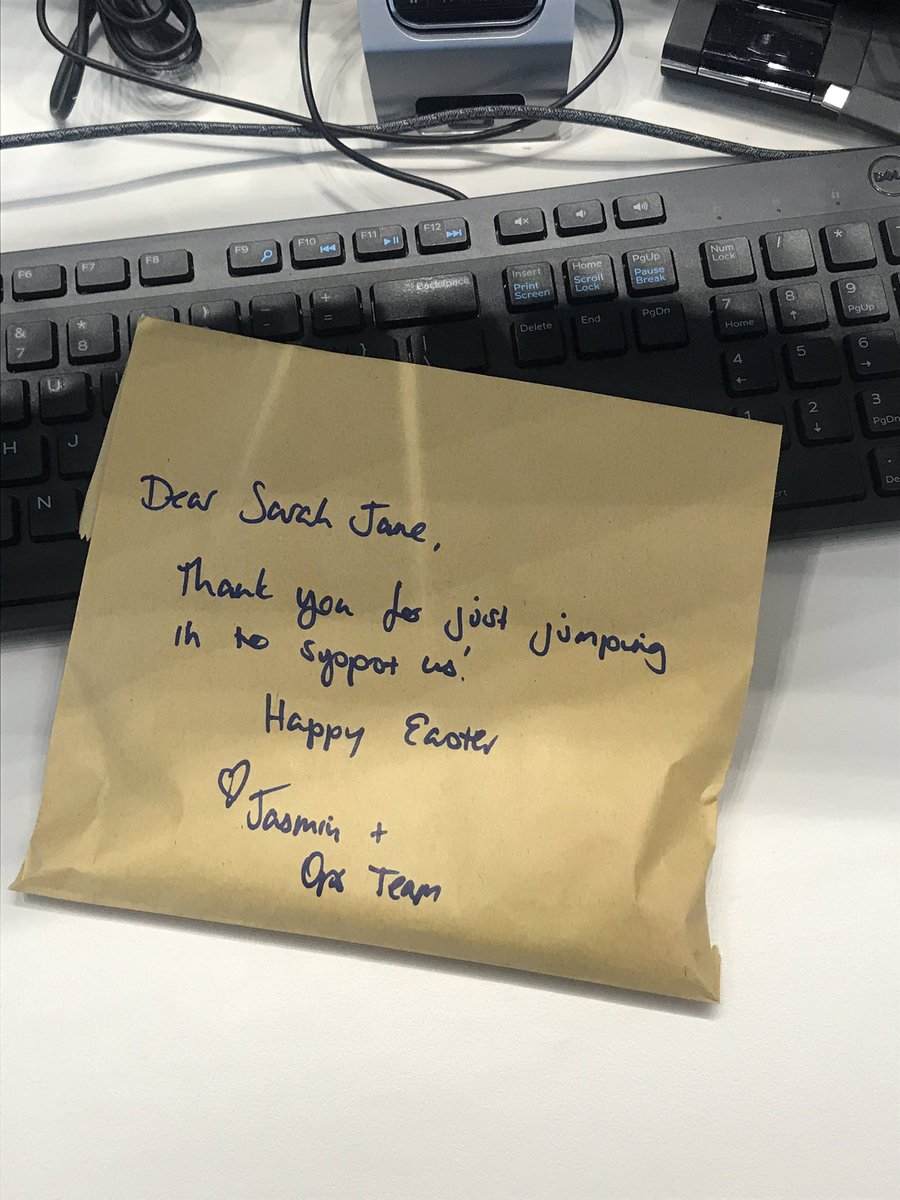 F6 F7 F8 F9 F10 F11 F12
DELL
& 7 * 8 ) - + = Backspace
Insert Print Screen Home Scroll Lock PgUp Pause Break
Num Lock / *
Delete End PgDn
7 Home 8 9 PgUp
U
4 5 6
H J
1 2 3 PgDn
N
Dear Sarah Jane,
Thank you for just jumping
in to support us!
Happy Easter
♡ Jasmin +
Ops Team